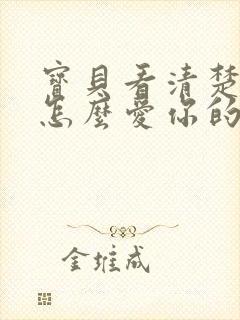 寶貝看清楚
怎麼愛你的
金堆成